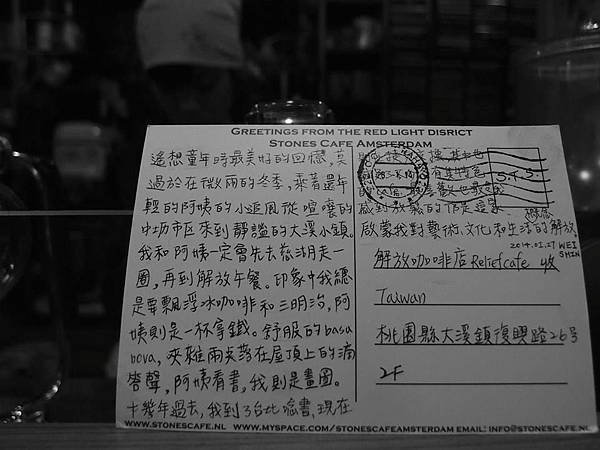 GREETINGS FROM THE RED LIGHT DISRICT
STONES CAFE AMSTERDAM
遙想童年時最美好的回憶，莫
過於在微雨的冬季，乘著還年
輕的阿姨的小巡風從喧嚷的
中坜市區來到靜謐的大溪小鎮。
我和阿姨一定會先去慈湖走一
圈，再到解放午餐。印象中我總
是要飄浮冰咖啡和三明治，阿
姨則是一杯拿鐵。舒服的basa
nova，夾雜雨天落在屋頂上的滴
答聲，阿姨看書，我則是畫圖。
十幾年過去，我到了台北唸書，現在
感
啟蒙我對藝術、文化和生活的解放。
2014.01.27 WEI
SHIN
解放咖啡店 Reliefcafe 收
Taiwan
桃園縣大溪鎮復興路26号
2F
WWW.STONESCAFE.NL WWW.MYSPACE.COM/STONESCAFEAMSTERDAM EMAIL: INFO@STONESCAFE.NL